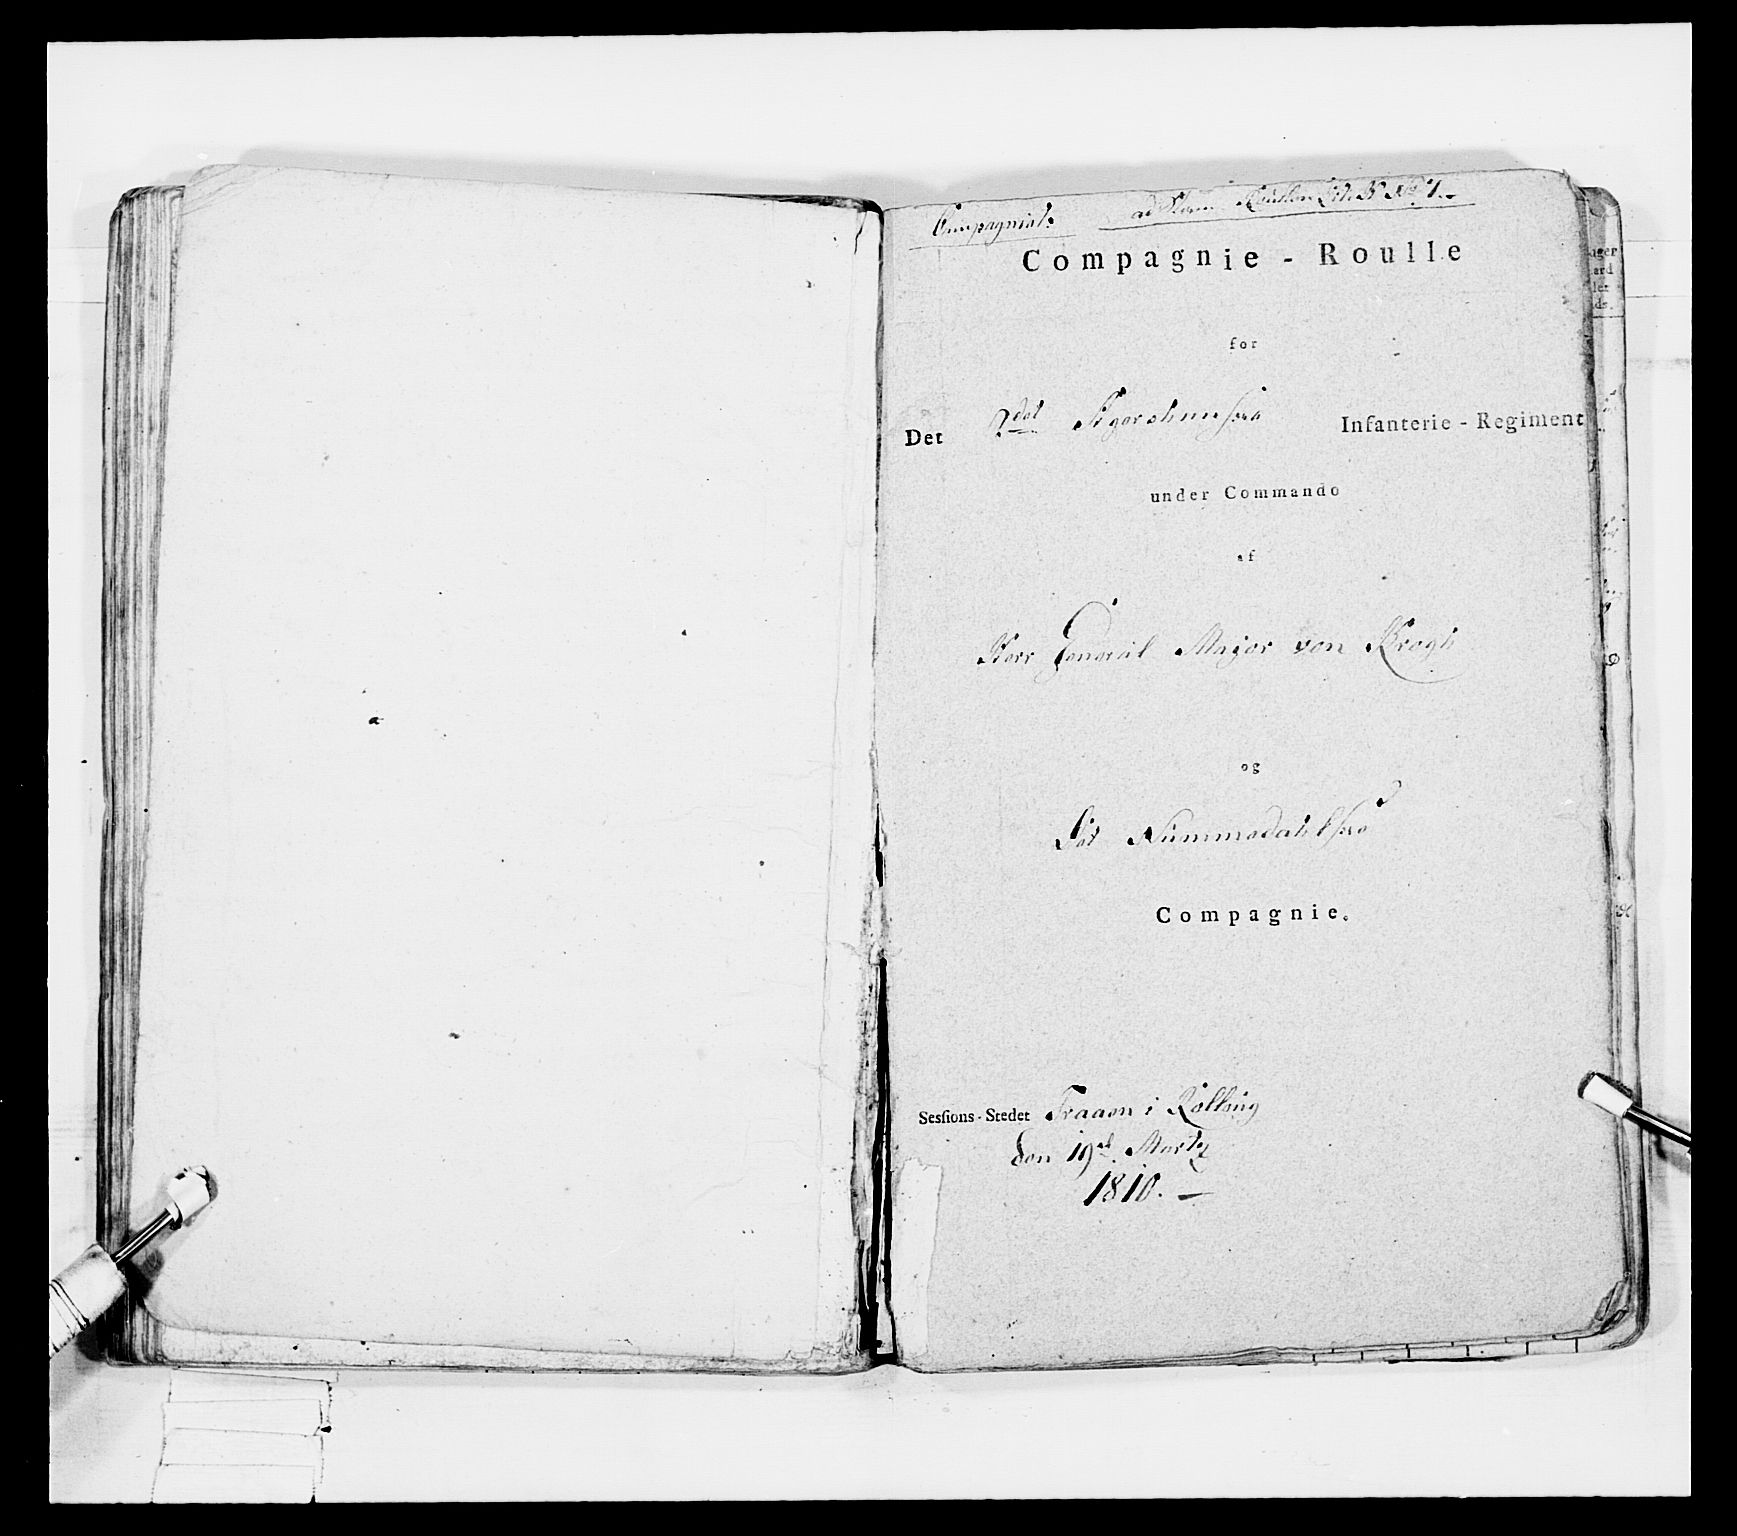 Compagniets
ad Stam Rullen Lit. N No 1.
Compagnie - Roulle
for
Det 2det Trondhiemske Infanterie - Regiment
under Commando
af
Herr General Major von Krogh
og
Det Nummedahlske
Compagnie.
Sessions-Stedet Fraaen i Rolloug
den 19d Martz
1810. —